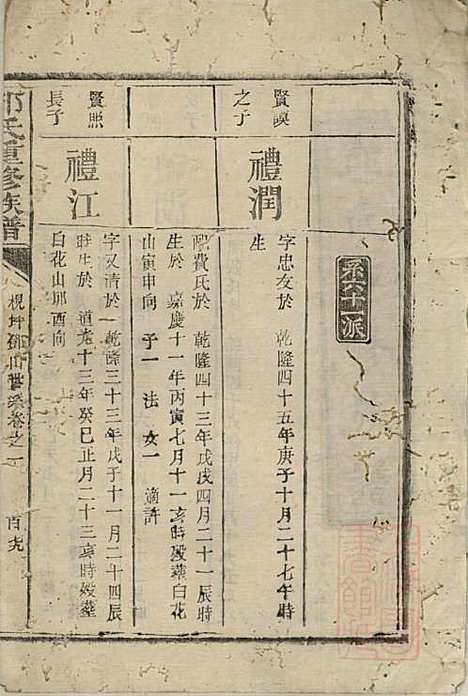 系六十一派
賢謨
之子
禮潤
字忠友於 乾隆四十五年庚子十月二十七午時
生
配費氏於 乾隆四十三年戊戌四月二十一辰時
生於 嘉慶十一年丙寅七月十一亥時歿葬白花
山寅申向 子一 法 女一 適許
賢照
長子
禮江
字又清於 乾隆三十三年戊子十一月二十四辰
時生於 道光十三年癸巳正月二十三亥時歿葬
白花山卯酉向
氏重修族譜
卷之一
百